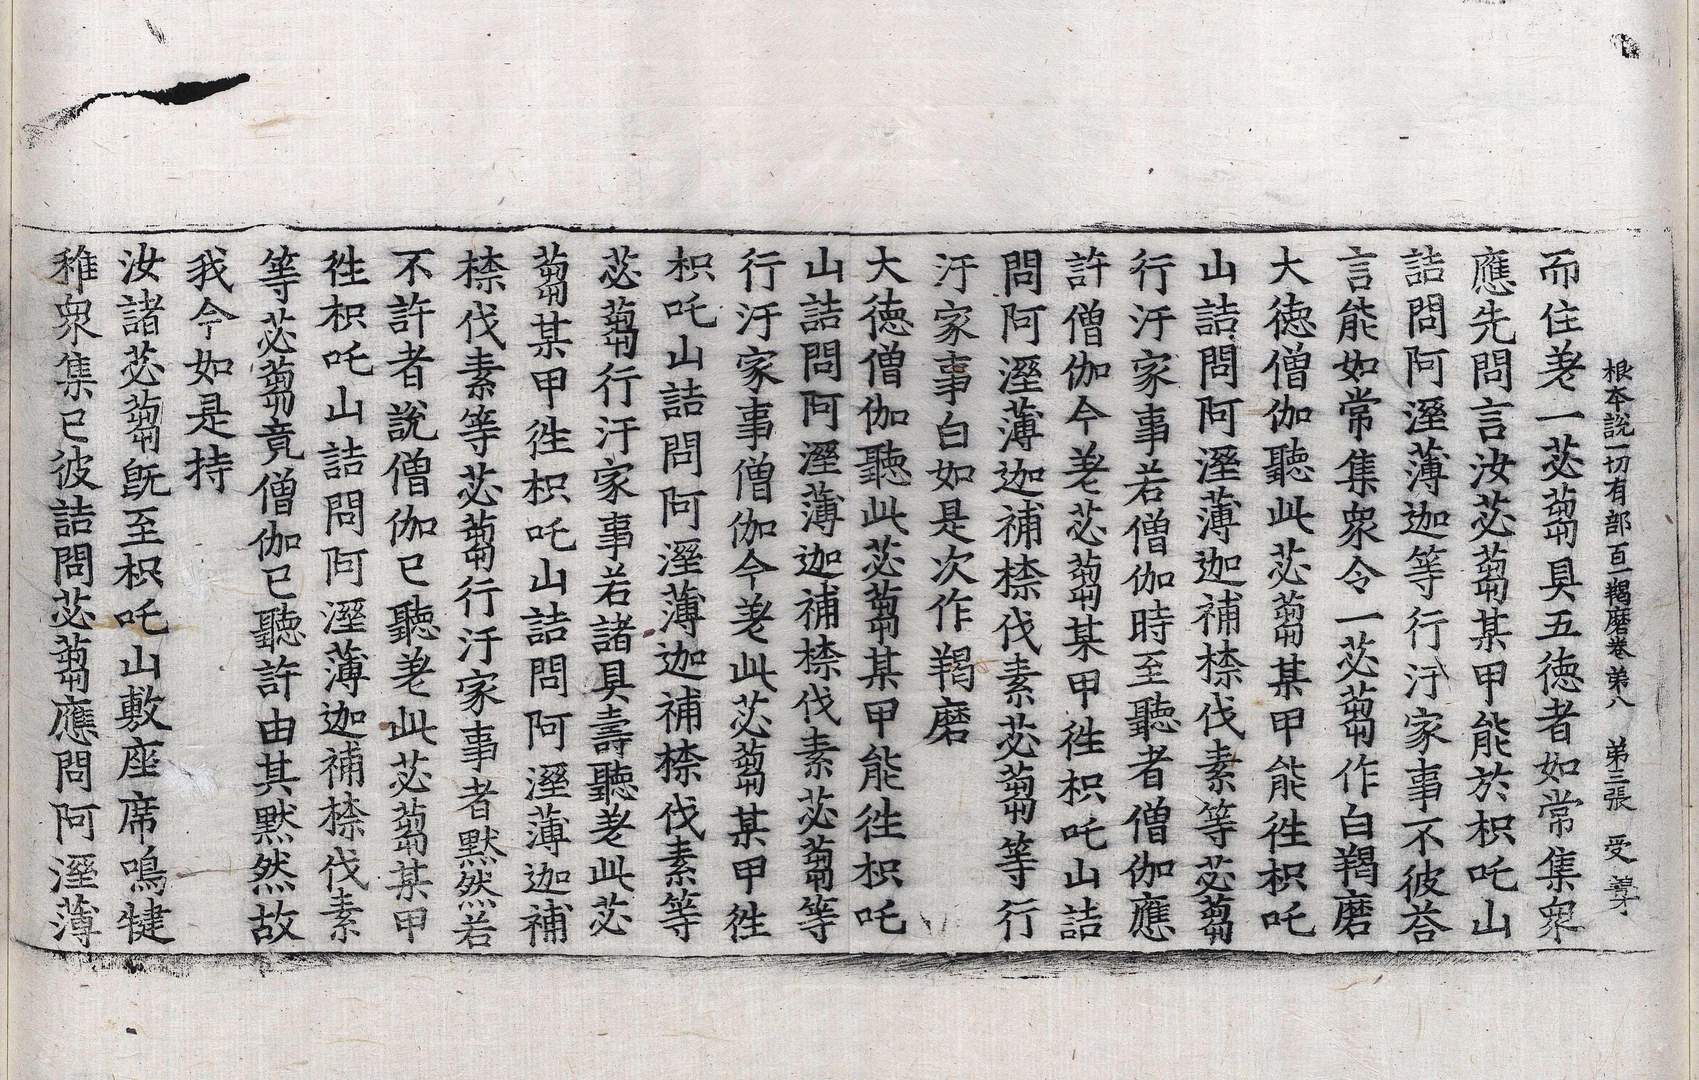 根本說一切有部百一羯磨卷第八　第三張　受
而住差一苾蒭具五德者如常集衆
應先問言汝苾蒭某甲能於枳吒山
詰問阿溼薄迦等行汙家事不彼荅
言能如常集衆令一苾蒭作白羯磨
大德僧伽聽此苾蒭某甲能往枳吒
山詰問阿溼薄迦補㮈伐素等苾蒭
行汙家事若僧伽時至聽者僧伽應
許僧伽今差苾蒭某甲往枳吒山詰
問阿溼薄迦補㮈伐素苾蒭等行
汙家事白如是次作羯磨
大德僧伽聽此苾蒭某甲能往枳吒
山詰問阿溼薄迦補㮈伐素苾蒭等
行汙家事僧伽今差此苾蒭某甲往
枳吒山詰問阿溼薄迦補㮈伐素等
苾蒭行汙家事若諸具壽聽差此苾
蒭某甲往枳吒山詰問阿溼薄迦補
㮈伐素等苾蒭行汙家事者默然若
不許者說僧伽已聽差此苾蒭某甲
往枳吒山詰問阿溼薄迦補㮈伐素
等苾蒭竟僧伽已聽許由其默然故
我今如是持
汝諸苾蒭旣至枳吒山敷座席鳴犍
稚衆集已彼詰問苾蒭應問阿溼薄